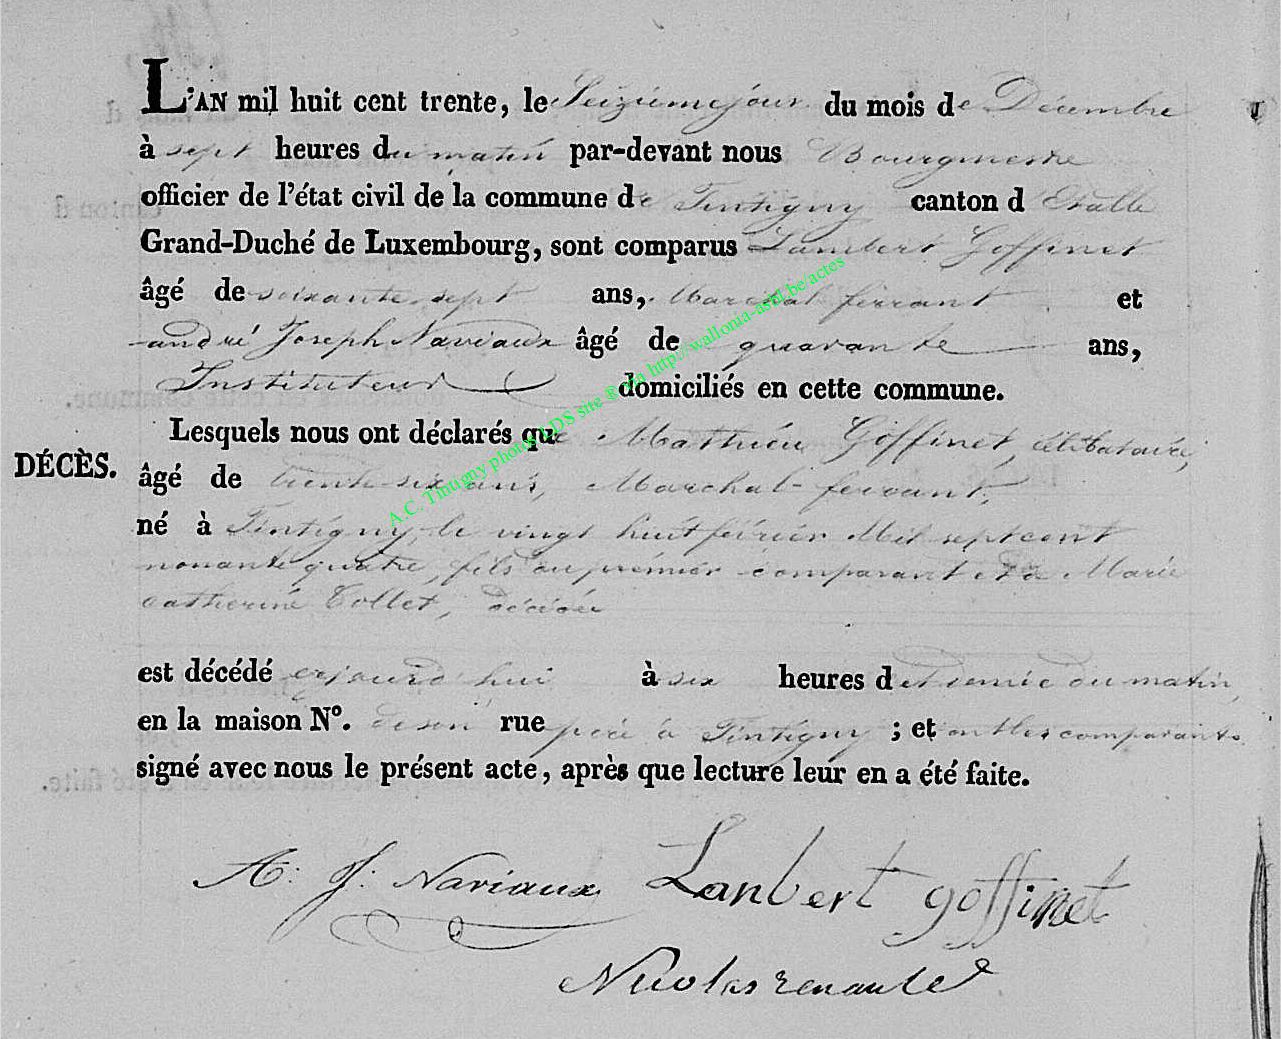 L'AN mil huit cent trente, le Seizieme jour du mois de Décembre
à sept heures du matin par-devant nous Bourgmestre
officier de l'état civil de la commune de Tintigny canton d'Etalle
Grand-Duché de Luxembourg, sont comparus Lambert Goffinet
âgé de soixante sept ans, Marchal ferrant et
andré Joseph Naviaux âgé de quarante ans,
Instituteur domiciliés en cette commune.
Lesquels nous ont déclarés que Mathieu Goffinet, célibataire,
DÉCÈS.
âgé de trente-six ans, Marchal-ferrant,
né à Tintigny, le vingt huit février Mil sept cent
nonante quatre, fils du premier comparant et de Marie
catherine Collet, décédée
est décédé aujourd'hui à six heures et demie du matin,
en la maison N°. de son rue père à Tintigny ; et ont les comparants
signé avec nous le présent acte, après que lecture leur en a été faite.
A: J: Naviaux Lanbert goffinet
Nicolas renauld
A.C. Tintigny photos LDS site ® via http://wallonia-asbl.be/actes